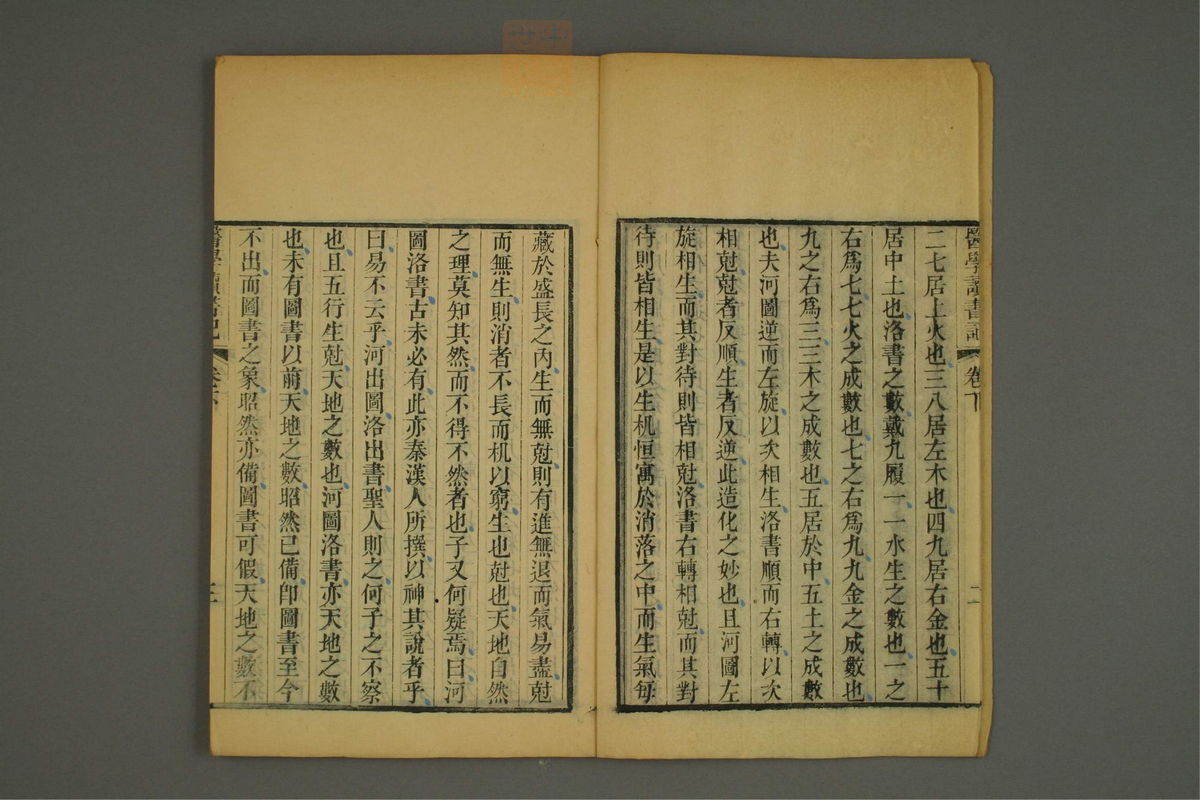 醫學讀書記 卷下 二
二七居上火也三八居左木也四九居右金也五十
居中土也洛書之數戴九履一一水生之數也一之
右爲七七火之成數也七之右爲九九金之成數也
九之右爲三三木之成數也五居於中五土之成數
也夫河圖逆而左旋以次相生洛書順而右轉以次
相尅尅者反順生者反逆此造化之妙也且河圖左
旋相生而其對待則皆相尅洛書右轉相尅而其對
待則皆相生是以生机恒寓於消落之中而生氣每
藏於盛長之內生而無尅則有進無退而氣易盡尅
而無生則消者不長而机以窮生也尅也天地自然
之理莫知其然而不得不然者也子又何疑焉曰河
圖洛書古未必有此亦秦漢人所撰以神其說者乎
曰易不云乎河出圖洛出書聖人則之何子之不察
也且五行生尅天地之數也河圖洛書亦天地之數
也未有圖書以前天地之數昭然已備卽圖書至今
不出而圖書之象昭然亦備圖書可假天地之數不
醫學讀書記 卷下 三